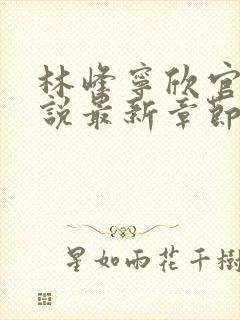 林峰寧欣官
說最新章節
星如雨花千樹